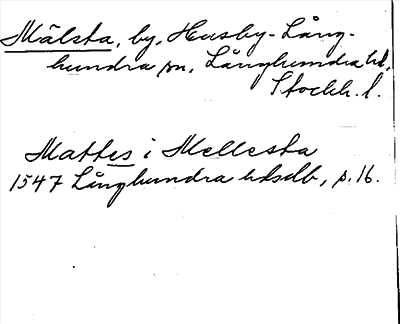 Mälsta, by, Husby-Lång-
hundra sn, Långhundra hd,
Stockh. l.
Mattes i Mellesta
1547 Långhundra hdsdb, p. 16.